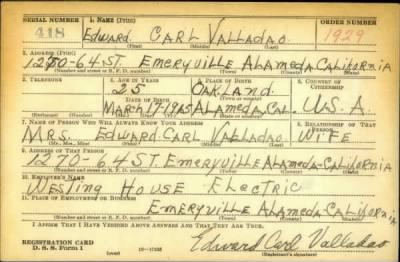 SERIAL NUMBER 1. NAME (Print) ORDER NUMBER
418 EDWARD CARL VALLADAO 1929
(First) (Middle) (Last)
2. ADDRESS (Print)
1270-64 ST. EMERYVILLE ALAMEDA CALIFORNIA
(Number and street or R. F. D. number) (Town) (County) (State)
3. TELEPHONE 4. AGE IN YEARS 5. PLACE OF BIRTH 6. COUNTRY OF CITIZENSHIP
25 OAKLAND
DATE OF BIRTH (Town or county)
MARCH 17-1915 ALAMEDA, CAL. U.S.A.
(Exchange) (Number) (Mo.) (Day) (Yr.) (State or country)
7. NAME OF PERSON WHO WILL ALWAYS KNOW YOUR ADDRESS 8. RELATIONSHIP OF THAT PERSON
MRS. EDWARD CARL VALLADAO WIFE
(Mr., Mrs., Miss) (First) (Middle) (Last)
9. ADDRESS OF THAT PERSON
1270-64 ST. EMERYVILLE ALAMEDA-CALIFORNIA
(Number and street or R. F. D. number) (Town) (County) (State)
10. EMPLOYER'S NAME
WESTING HOUSE ELECTRIC
11. PLACE OF EMPLOYMENT OR BUSINESS
EMERYVILLE ALAMEDA-CALIFORNIA
(Number and street or R. F. D. number) (Town) (County) (State)
I AFFIRM THAT I HAVE VERIFIED ABOVE ANSWERS AND THAT THEY ARE TRUE.
REGISTRATION CARD
D. S. S. Form 1 (over) Edward Carl Valladao
(Registrant's signature)